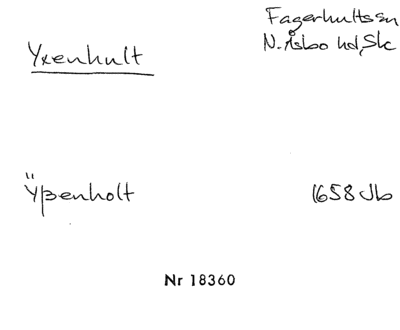 Fagerhults sn
Yxenhult N. Åsbo hd, Sk
Ÿpenholt 1658 Jb
Nr 18360